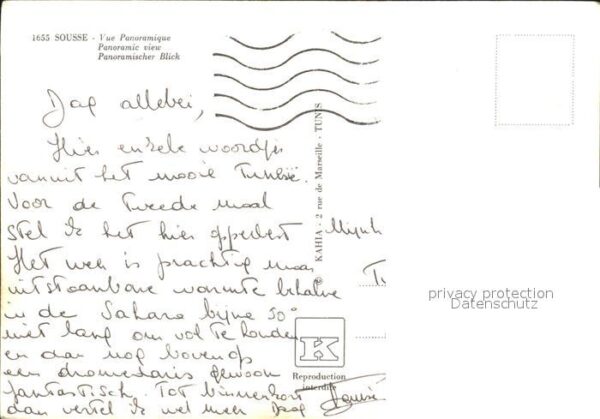 1655 SOUSSE - Vue Panoramique
Panoramic view
Panoramischer Blick
Dag allebei,
Hier enkele woordjes
vanuit het mooie Tunesië.
Voor de tweede maal
stel ik het hier opperbest
Het weer is prachtig maar
uitstaanbare warmte behalve
in de Sahara bijna 50°
niet lang om vol te houden
en dan nog bovenop
een dromedaris gewoon
fantastisch. Tot binnenkort
dan vertel ik wel meer Dag
KAHIA - 2 rue de Marseille - TUNIS
privacy protection
Datenschutz
K
Reproduction
interdite